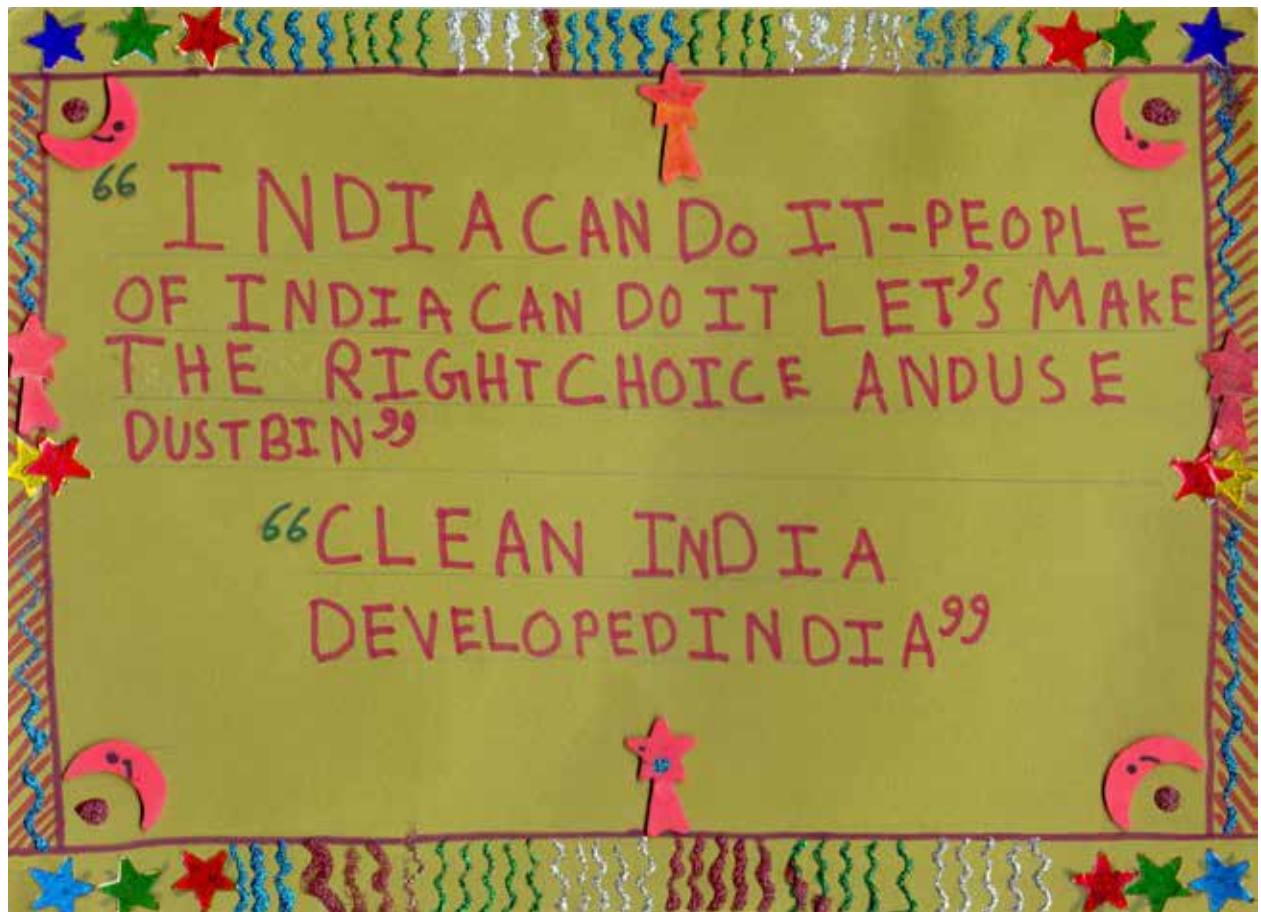 “INDIA CAN Do IT-PEOPLE
OF INDIA CAN DO IT LET'S MAKE
THE RIGHT CHOICE AND USE
DUSTBIN”
“CLEAN INDIA
DEVELOPED INDIA”